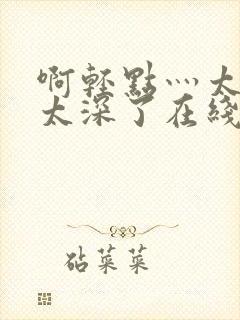 啊輕點灬太
太深了在綫
砧菜菜